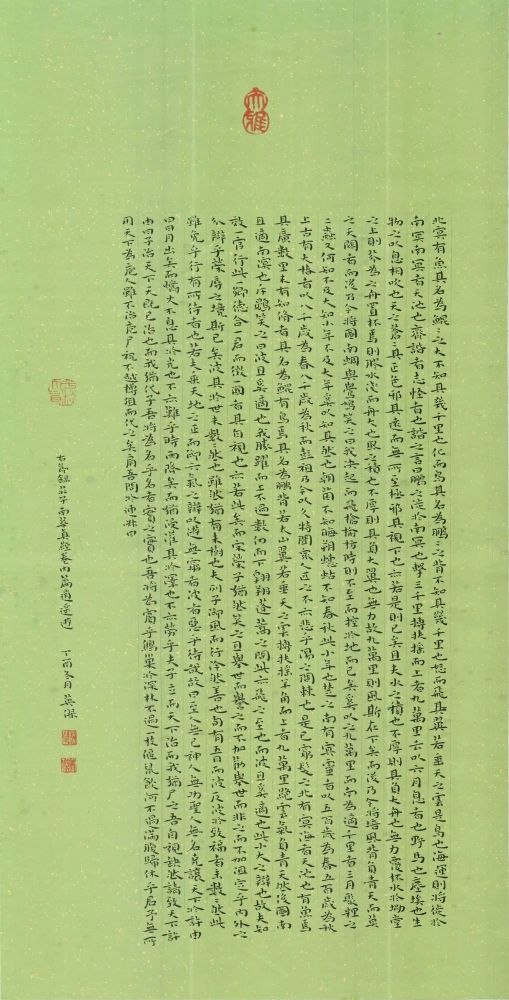 大雅
北冥有魚其名為鯤〻之大不知其幾千里也化而為鳥其名為鵬〻之背不知其幾千里也怒而飛其翼若垂天之雲是鳥也海運則將徙於
南冥南冥者天池也齊諧者志怪者也諧之言曰鵬之徙於南冥也擊三千里摶扶搖而上者九萬里去以六月息者也野馬也塵埃也生
物之以息相吹也天之蒼〻其正色邪其遠而無所至極邪其視下也亦若是則已矣且夫水之積也不厚則其負大舟也無力覆杯水於坳堂
之上則芥為之舟置杯焉則膠水淺而舟大也風之積也不厚則其負大翼也無力故九萬里則風斯在下矣而後乃今將培風背負青天而莫
之夭閼者而後乃今將圖南蜩與鷽鳩笑之曰我決起而飛搶榆枋時則不至而控於地而已矣奚以之九萬里而南為適千里者三月聚糧之
二蟲又何知不及大知小年不及大年奚以知其然也朝菌不知晦朔蟪蛄不知春秋此小年也楚之南有冥靈者以五百歲為春五百歲為秋
上古有大椿者以八千歲為春八千歲為秋而彭祖乃今以久特聞眾人匹之不亦悲乎湯之問棘也是已窮髮之北有冥海者天池也有魚焉
其廣數里未有知脩者其名為鯤有鳥焉其名為鵬背若太山翼若垂天之雲摶扶搖羊角而上者九萬里絕雲氣負青天然後圖南
且適南溟也斥鴳笑之曰彼且奚適也我騰躍而上不過數仞而下翱翔蓬蒿之間此亦飛之至也而彼且奚適也此小大之辯也故夫知
效一官行此一鄉德合一君而徵一國者其自視也亦若此矣而宋榮子猶然笑之且舉世而譽之而不加勸舉世而非之而不加沮定乎內外之
分辯乎榮辱之境斯已矣彼其於世未數〻然也雖然猶有未樹也夫列子御風而行泠然善也旬有五日而後反彼於致福者未數〻然此
雖免乎行有所待者也若夫乘天地之正而御六氣之辯以遊無窮者彼者惡乎待哉故曰至人無己神人無功聖人無名堯讓天下於許由
曰日月出矣而爝火不息其於光也不亦難乎時雨降矣而猶浸灌其於澤也不亦勞乎夫子立而天下治而我猶尸之吾自視缺然請致天下許
由曰子治天下天既已治也而我猶代子吾將為名乎名者實之賓也吾將為賓乎鷦巢於深林不過一枝偃鼠飲河不過滿腹歸休乎君予無所
用天下為庖人雖不治庖尸祝不越樽俎而代之矣肩吾問於連叔曰
右節錄莊子南華真經卷內篇逍遙遊 丁酉冬月英傑